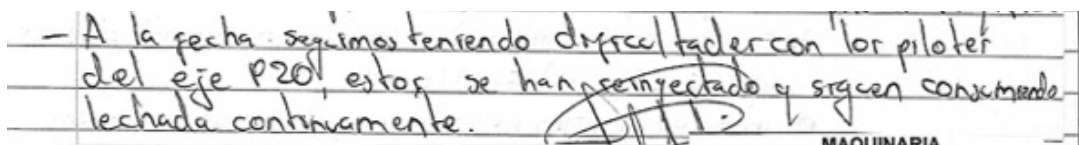 - A la fecha seguimos teniendo dificultades con los pilotes
del eje P20, estos se han reinyectado y siguen consumiendo
lechada continuamente.
MAQUINARIA